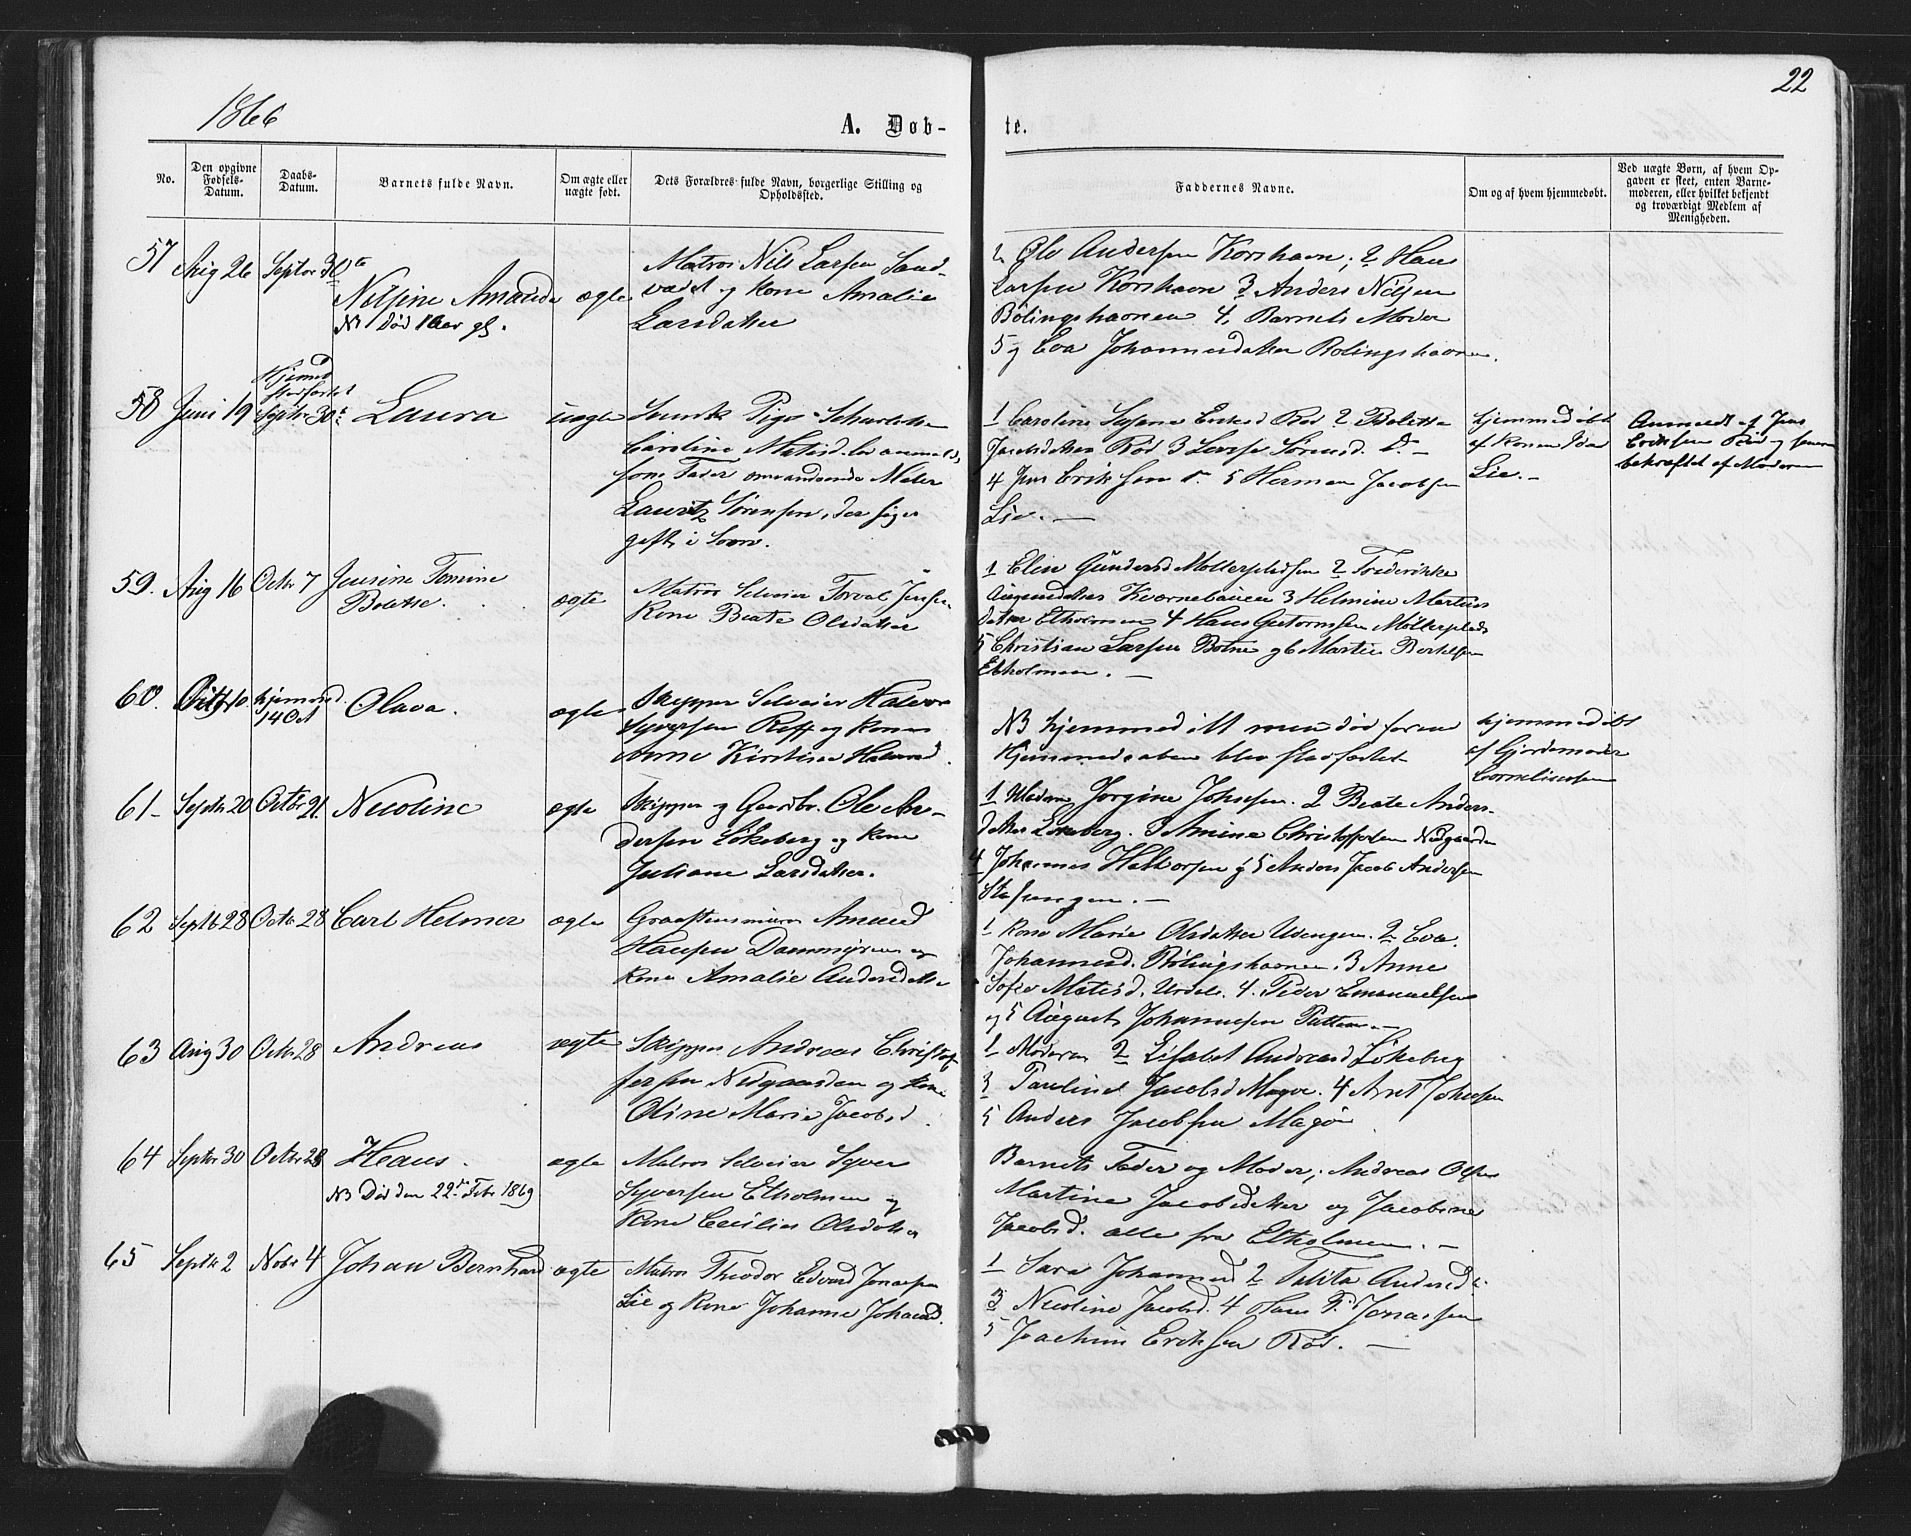 1866
22
A. Døb-
te.
No.
Den opgivne Fødsels-Datum.
Daabs-Datum.
Barnets fulde Navn.
Om ægte eller uægte født.
Dets Forældres fulde Navn, borgerlige Stilling og Opholdssted.
Faddernes Navne.
Om og af hvem hjemmedøbt.
Ved uægte Børn, af hvem Op-
gaven er skeet, enten Barne-
moderen, eller hvilket bekjendt
og troværdigt Medlem af
Menigheden.
57 Aug 26 Septbr 30te
Nilsine Amanda ægte
NB død 1 Aar gl.
Matros Nils Larsen Sand-
vadet og Kone Amalie
Larsdatter
1 Ole Andersen Korshavn; 2 Hans
Larsen Korshavn 3 Anders Nilsen
Bölingshavnen 4, Barnets Moder
5 og Eva Johannesdatter Bölingshavnen.
58 Juni 19 Hjemd
stadfæstet
Septbr 30te Laura uægte
Pige
Caroline Matisd.
som Fader omvandrende Maler
Lauritz Sörensen, der siges
gift i
1 Caroline Susane Eriksd Röd 2 Bolette
Jacobsdatter Röd 3 Sörensd. D. –
4 Jens Eriksen D. 5 Herman Jacobsen
Lie. –
hjemmedöbt
af Konen Ida
Lie. –
Anmeldt af Jens
Eriksen Röd og senere
bekræftet af Moderen
59. Aug 16 Octbr 7 Jensine Tomine
Bolette. ægte
Matros Selveier Torval Jensen
Kone Beate Olsdatter
1 Elen Gundersd Möllerpladsen 2 Frederikke
Amundsdatter Kværnebauen 3 Helmine Martins
datter Etholmen 4 Hans Gutormsen Möllerplads
5 Christian Larsen Botne og 6 Martin Bertelsen
Etholmen. –
60. 10. hjemmed.
14 Oct Olava. ægte
Skipper Selveier Halvor
Syversen Reff og Kone
Anne Kirstine Halvorsd.
NB hjemmedöbt men död förend
Hjemmedaaben blev stadfæstet
hjemmedöbt
af Gjordemoder
Corneliussen
61– Septbr 20 Octbr 21. Nicoline ægte
Skipper og Gaardbr. Ole An-
dersen Lökeberg og Kone
Juliane Larsdatter.
1 Madm Jorgine Johnsen. 2 Beate Anders-
datter Lökeberg. 3 Amine Christoffersen Nedgaarden
4 Johannes Halvorsen og 5 Anders Jacob Andersen
62 Septb 28 Octbr 28 Carl Helmer ægte
Graastensminer Amund
Hansen Dammyren og
Kone Amalie Andersdatter
1 Kone Marie Olsdatter Udengen. 2 Eva
Johannesd. Bölingshavnen. 3 Anne
Sofie Matisd. Urdal. 4. Peder Emanuelsen
og 5 August Johannesen Putten. –
63 Aug 30 Octbr 28 Andreas ægte
Skipper Andreas Christof-
fersen Nedgaarden og Kone
Oline Marie Jacobsd.
1 Moderen 2 Elisabet Andreasd Lökeberg
3 Pauline Jacobsd Magøe. 4 Arnt Johnsen
5 Anders Jacobsen Magøe
64 Septbr 30 Octbr 28 Hans. ægte
NB Död den 22de Febr 1869
Matros Selveier Syver
Syversen Etholmen og
Kone Cecilie Olsdatter
Barnets Fader og Moder; Andreas Olsen
Martine Jacobsdatter og Jacobine
Jacobsd. alle fra Etholmen. –
65 Septbr 2 Nobr 4 Johan Bernhard ægte
Matros Theodor Edvard Jonassen
Lie og Kone Johanne Johansd.
1 Sara Johannesd 2 Talita Andersdtr
3 Nicoline Jacobsd. 4 Hans P. Jonassen
5 Joachim Eriksen Röd. –